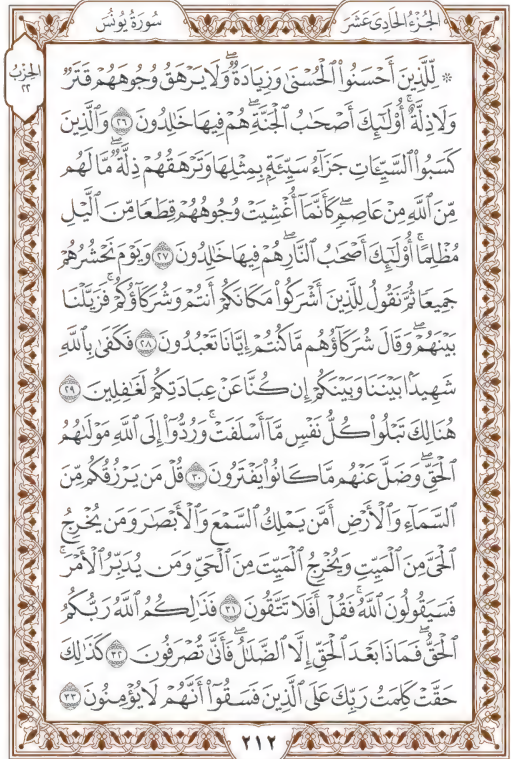 سُورَةُ يُونُسَ
الجُزْءُ الحَادِى عَشَرَ
الحِزْبُ
٢٢
۞ لِّلَّذِينَ أَحْسَنُوا۟ ٱلْحُسْنَىٰ وَزِيَادَةٌۖ وَلَا يَرْهَقُ وُجُوهَهُمْ قَتَرٌ
وَلَا ذِلَّةٌۚ أُو۟لَٰٓئِكَ أَصْحَٰبُ ٱلْجَنَّةِۖ هُمْ فِيهَا خَٰلِدُونَ ٢٦ وَٱلَّذِينَ
كَسَبُوا۟ ٱلسَّيِّـَٔاتِ جَزَآءُ سَيِّئَةٍۭ بِمِثْلِهَا وَتَرْهَقُهُمْ ذِلَّةٌۖ مَّا لَهُم
مِّنَ ٱللَّهِ مِنْ عَاصِمٍۖ كَأَنَّمَآ أُغْشِيَتْ وُجُوهُهُمْ قِطَعًا مِّنَ ٱلَّيْلِ
مُظْلِمًاۚ أُو۟لَٰٓئِكَ أَصْحَٰبُ ٱلنَّارِۖ هُمْ فِيهَا خَٰلِدُونَ ٢٧ وَيَوْمَ نَحْشُرُهُمْ
جَمِيعًا ثُمَّ نَقُولُ لِلَّذِينَ أَشْرَكُوا۟ مَكَانَكُمْ أَنتُمْ وَشُرَكَآؤُكُمْۚ فَزَيَّلْنَا
بَيْنَهُمْۖ وَقَالَ شُرَكَآؤُهُم مَّا كُنتُمْ إِيَّانَا تَعْبُدُونَ ٢٨ فَكَفَىٰ بِٱللَّهِ
شَهِيدًۢا بَيْنَنَا وَبَيْنَكُمْ إِن كُنَّا عَنْ عِبَادَتِكُمْ لَغَٰفِلِينَ ٢٩
هُنَالِكَ تَبْلُوا۟ كُلُّ نَفْسٍ مَّآ أَسْلَفَتْۚ وَرُدُّوٓا۟ إِلَى ٱللَّهِ مَوْلَىٰهُمُ
ٱلْحَقِّۖ وَضَلَّ عَنْهُم مَّا كَانُوا۟ يَفْتَرُونَ ٣٠ قُلْ مَن يَرْزُقُكُم مِّنَ
ٱلسَّمَآءِ وَٱلْأَرْضِ أَمَّن يَمْلِكُ ٱلسَّمْعَ وَٱلْأَبْصَٰرَ وَمَن يُخْرِجُ
ٱلْحَىَّ مِنَ ٱلْمَيِّتِ وَيُخْرِجُ ٱلْمَيِّتَ مِنَ ٱلْحَىِّ وَمَن يُدَبِّرُ ٱلْأَمْرَۚ
فَسَيَقُولُونَ ٱللَّهُۚ فَقُلْ أَفَلَا تَتَّقُونَ ٣١ فَذَٰلِكُمُ ٱللَّهُ رَبُّكُمُ
ٱلْحَقُّۖ فَمَاذَا بَعْدَ ٱلْحَقِّ إِلَّا ٱلضَّلَٰلُۖ فَأَنَّىٰ تُصْرَفُونَ ٣٢ كَذَٰلِكَ
حَقَّتْ كَلِمَتُ رَبِّكَ عَلَى ٱلَّذِينَ فَسَقُوٓا۟ أَنَّهُمْ لَا يُؤْمِنُونَ ٣٣
٢١٢